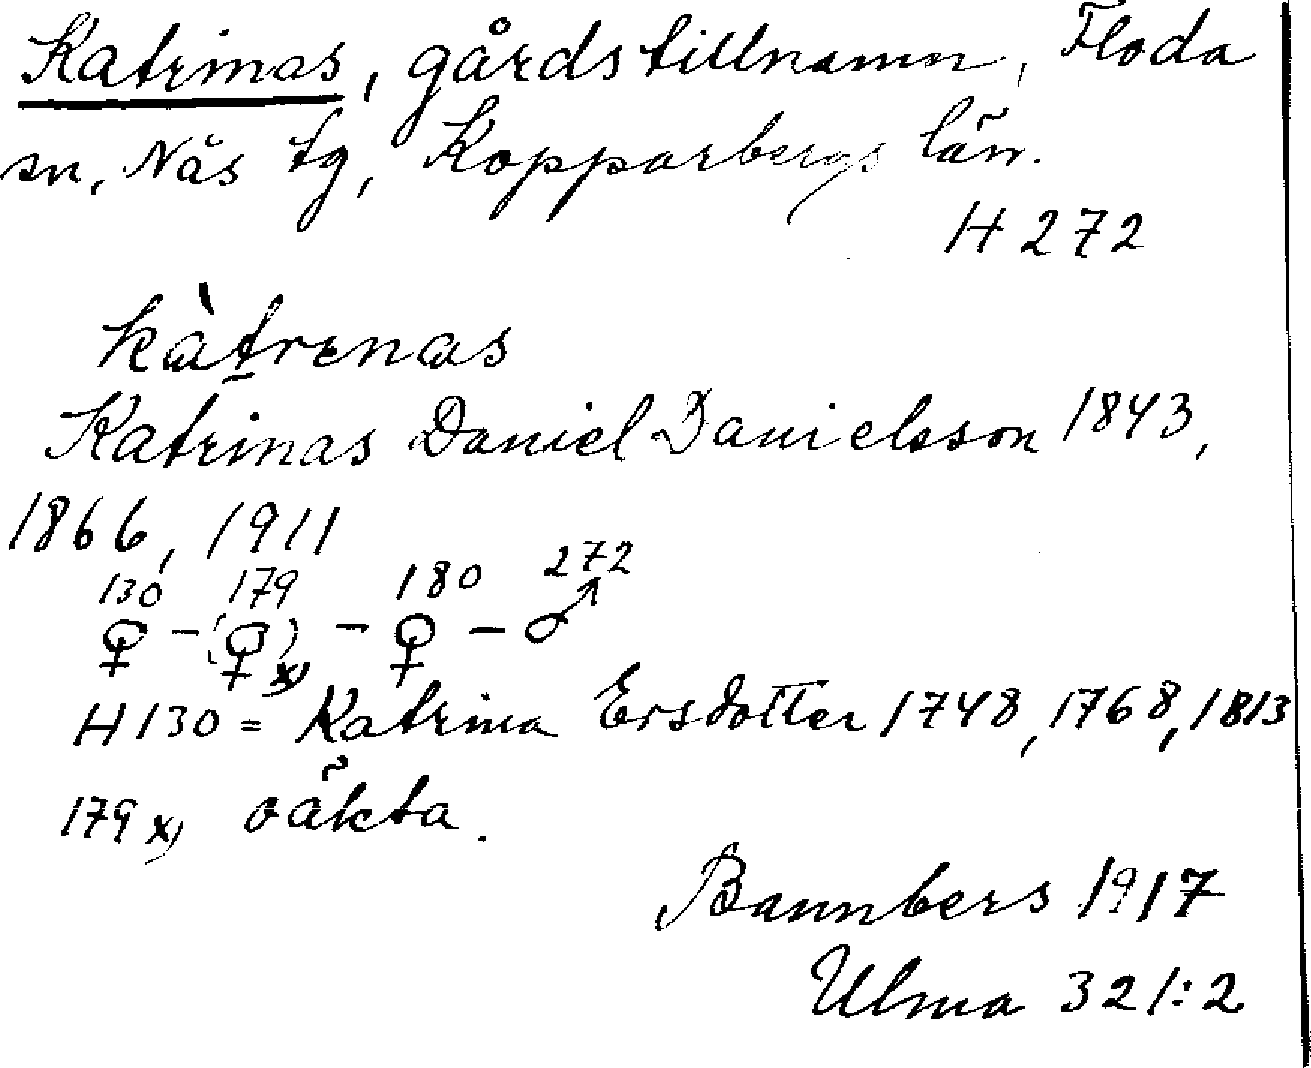 Katrinas, gårdstillnamn, Floda
sn, Näs tg, Kopparbergs län.
H 272
kàtrɩnas
Katrinas Daniel Danielsson 1843,
1866, 1911
130 179 180 272
♀ - (♀)x) - ♀ - ♂
H130 = Katrina Ersdotter 1748, 1768, 1813
179 x) oäkta.
Bannbers 1917
Ulma 321:2